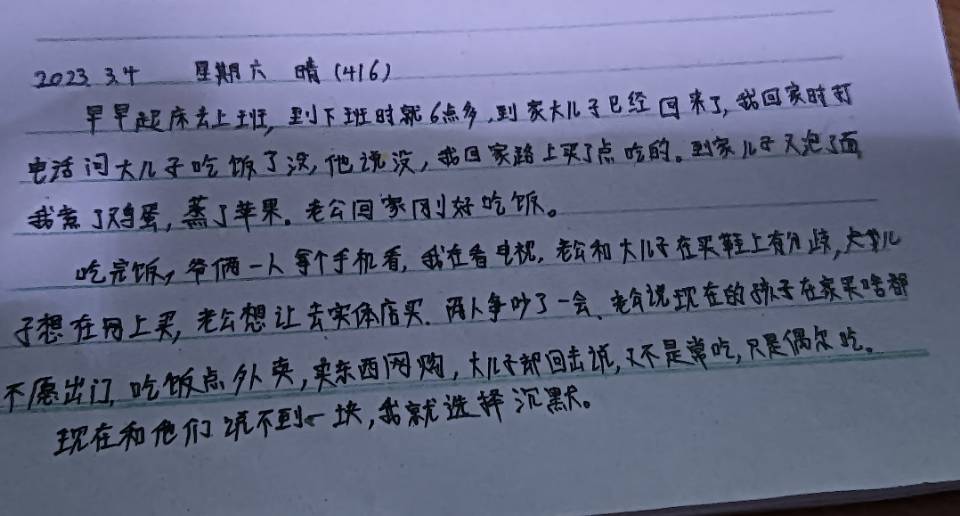 2023.3.4 星期六 晴(416)
早早起床去上班,到下班时就6点多,到家大儿子已经回来了,我回家时打
电话问大儿子吃饭了没,他说没,我回家路上买了点吃的。到家儿子又泡了面
我煮了鸡蛋,蒸了苹果。老公回家刚好吃饭。
吃完饭,爷俩一人拿个手机看,我在看电视,老公和大儿子在买鞋上有分歧,大儿
子想在网上买,老公想让去实体店买.两人争吵了一会、老公说现在的孩子在家买啥都
不愿出门,吃饭点外卖,买东西网购,大儿子却回击说,又不是常吃,只是偶尔吃。
现在和他们说不到一块,我就选择沉默。